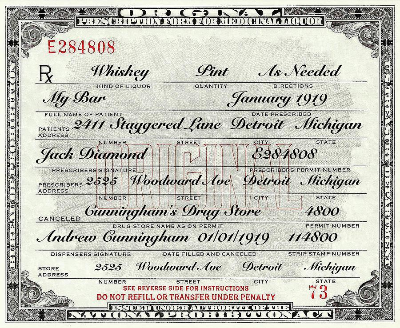 ORIGINAL
PRESCRIPTION FORM FOR MEDICINAL LIQUOR
E284808
Rx Whiskey Pint As Needed
KIND OF LIQUOR QUANTITY DIRECTIONS
My Bar January 1919
FULL NAME OF PATIENT DATE PRESCRIBED
PATIENTS ADDRESS 2411 Staggered Lane Detroit Michigan
NUMBER STREET CITY STATE
Jack Diamond E284808
PRESCRIBERS SIGNATURE PRESCRIBERS PERMIT NUMBER
PRESCRIBERS ADDRESS 2525 Woodward Ave Detroit Michigan
NUMBER STREET CITY STATE
Cunningham's Drug Store 4800
CANCELED DRUG STORE NAME AS ON PERMIT PERMIT NUMBER
Andrew Cunningham 01/01/1919 114800
DISPENSERS SIGNATURE DATE FILLED AND CANCELLED STRIP STAMP NUMBER
STORE ADDRESS 2525 Woodward Ave Detroit Michigan
NUMBER STREET CITY STATE
SEE REVERSE SIDE FOR INSTRUCTIONS
DO NOT REFILL OR TRANSFER UNDER PENALTY 73
ISSUED UNDER AUTHORITY OF THE
NATIONAL PROHIBITION ACT